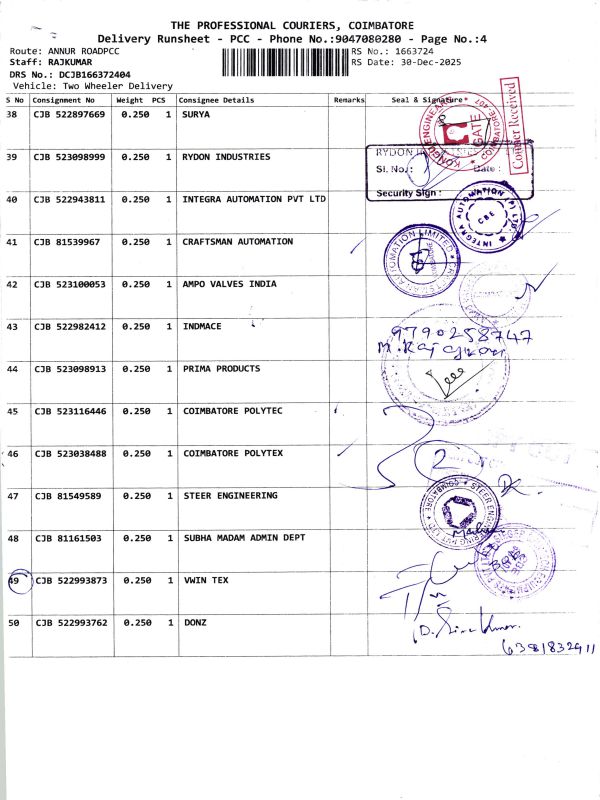 THE PROFESSIONAL COURIERS, COIMBATORE
Delivery Runsheet - PCC - Phone No.:9047080280 - Page No.:4
Route: ANNUR ROADPCC
RS No.: 1663724
Staff: RAJKUMAR
RS Date: 30-Dec-2025
DRS No.: DCJB166372404
Vehicle: Two Wheeler Delivery
S No Consignment No Weight PCS Consignee Details Remarks Seal & Signature
38 CJB 522897669 0.250 1 SURYA
GATE
Courier Received
39 CJB 523098999 0.250 1 RYDON INDUSTRIES
RYDON
Sl. No.: Date :
Security Sign :
40 CJB 522943811 0.250 1 INTEGRA AUTOMATION PVT LTD
INTEGRA AUTOMATION (P) LTD
CBE
41 CJB 81539967 0.250 1 CRAFTSMAN AUTOMATION
AUTOMATION LIMITED
42 CJB 523100053 0.250 1 AMPO VALVES INDIA
43 CJB 522982412 0.250 1 INDMACE
9790258747
44 CJB 523098913 0.250 1 PRIMA PRODUCTS
45 CJB 523116446 0.250 1 COIMBATORE POLYTEC
46 CJB 523038488 0.250 1 COIMBATORE POLYTEX
2
47 CJB 81549589 0.250 1 STEER ENGINEERING
STEER ENGINEERING PVT LTD
COIMBATORE
48 CJB 81161503 0.250 1 SUBHA MADAM ADMIN DEPT
49 CJB 522993873 0.250 1 VWIN TEX
50 CJB 522993762 0.250 1 DONZ
6381832911